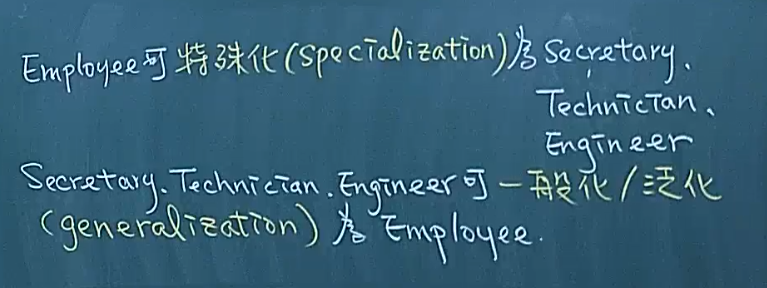 Employee可特殊化(specialization)為Secretary、
Technician、
Engineer
Secretary、Technician、Engineer可一般化/泛化
(generalization)為Employee.